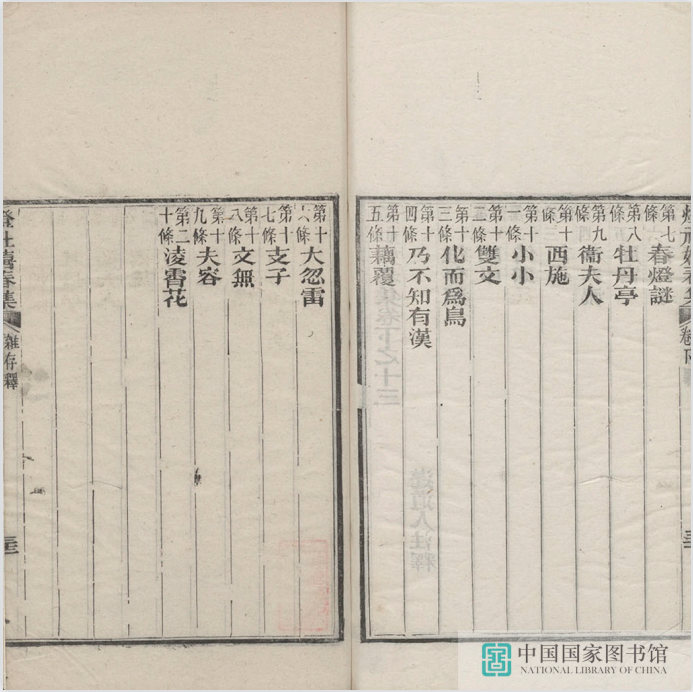 春集 卷下
第七條 春燈謎
第八條 牡丹亭
第九條 衛夫人
第十條 西施
第十一條 小小
第十二條 雙文
第十三條 化而爲鳥
第十四條 乃不知有漢
第十五條 藕覆
第十六條 大忽雷
第十七條 支子
第十八條 文無
第十九條 夫容
第二十條 淩霄花
社嬉春集 雜存釋
中国国家图书馆
NATIONAL LIBRARY OF CHINA